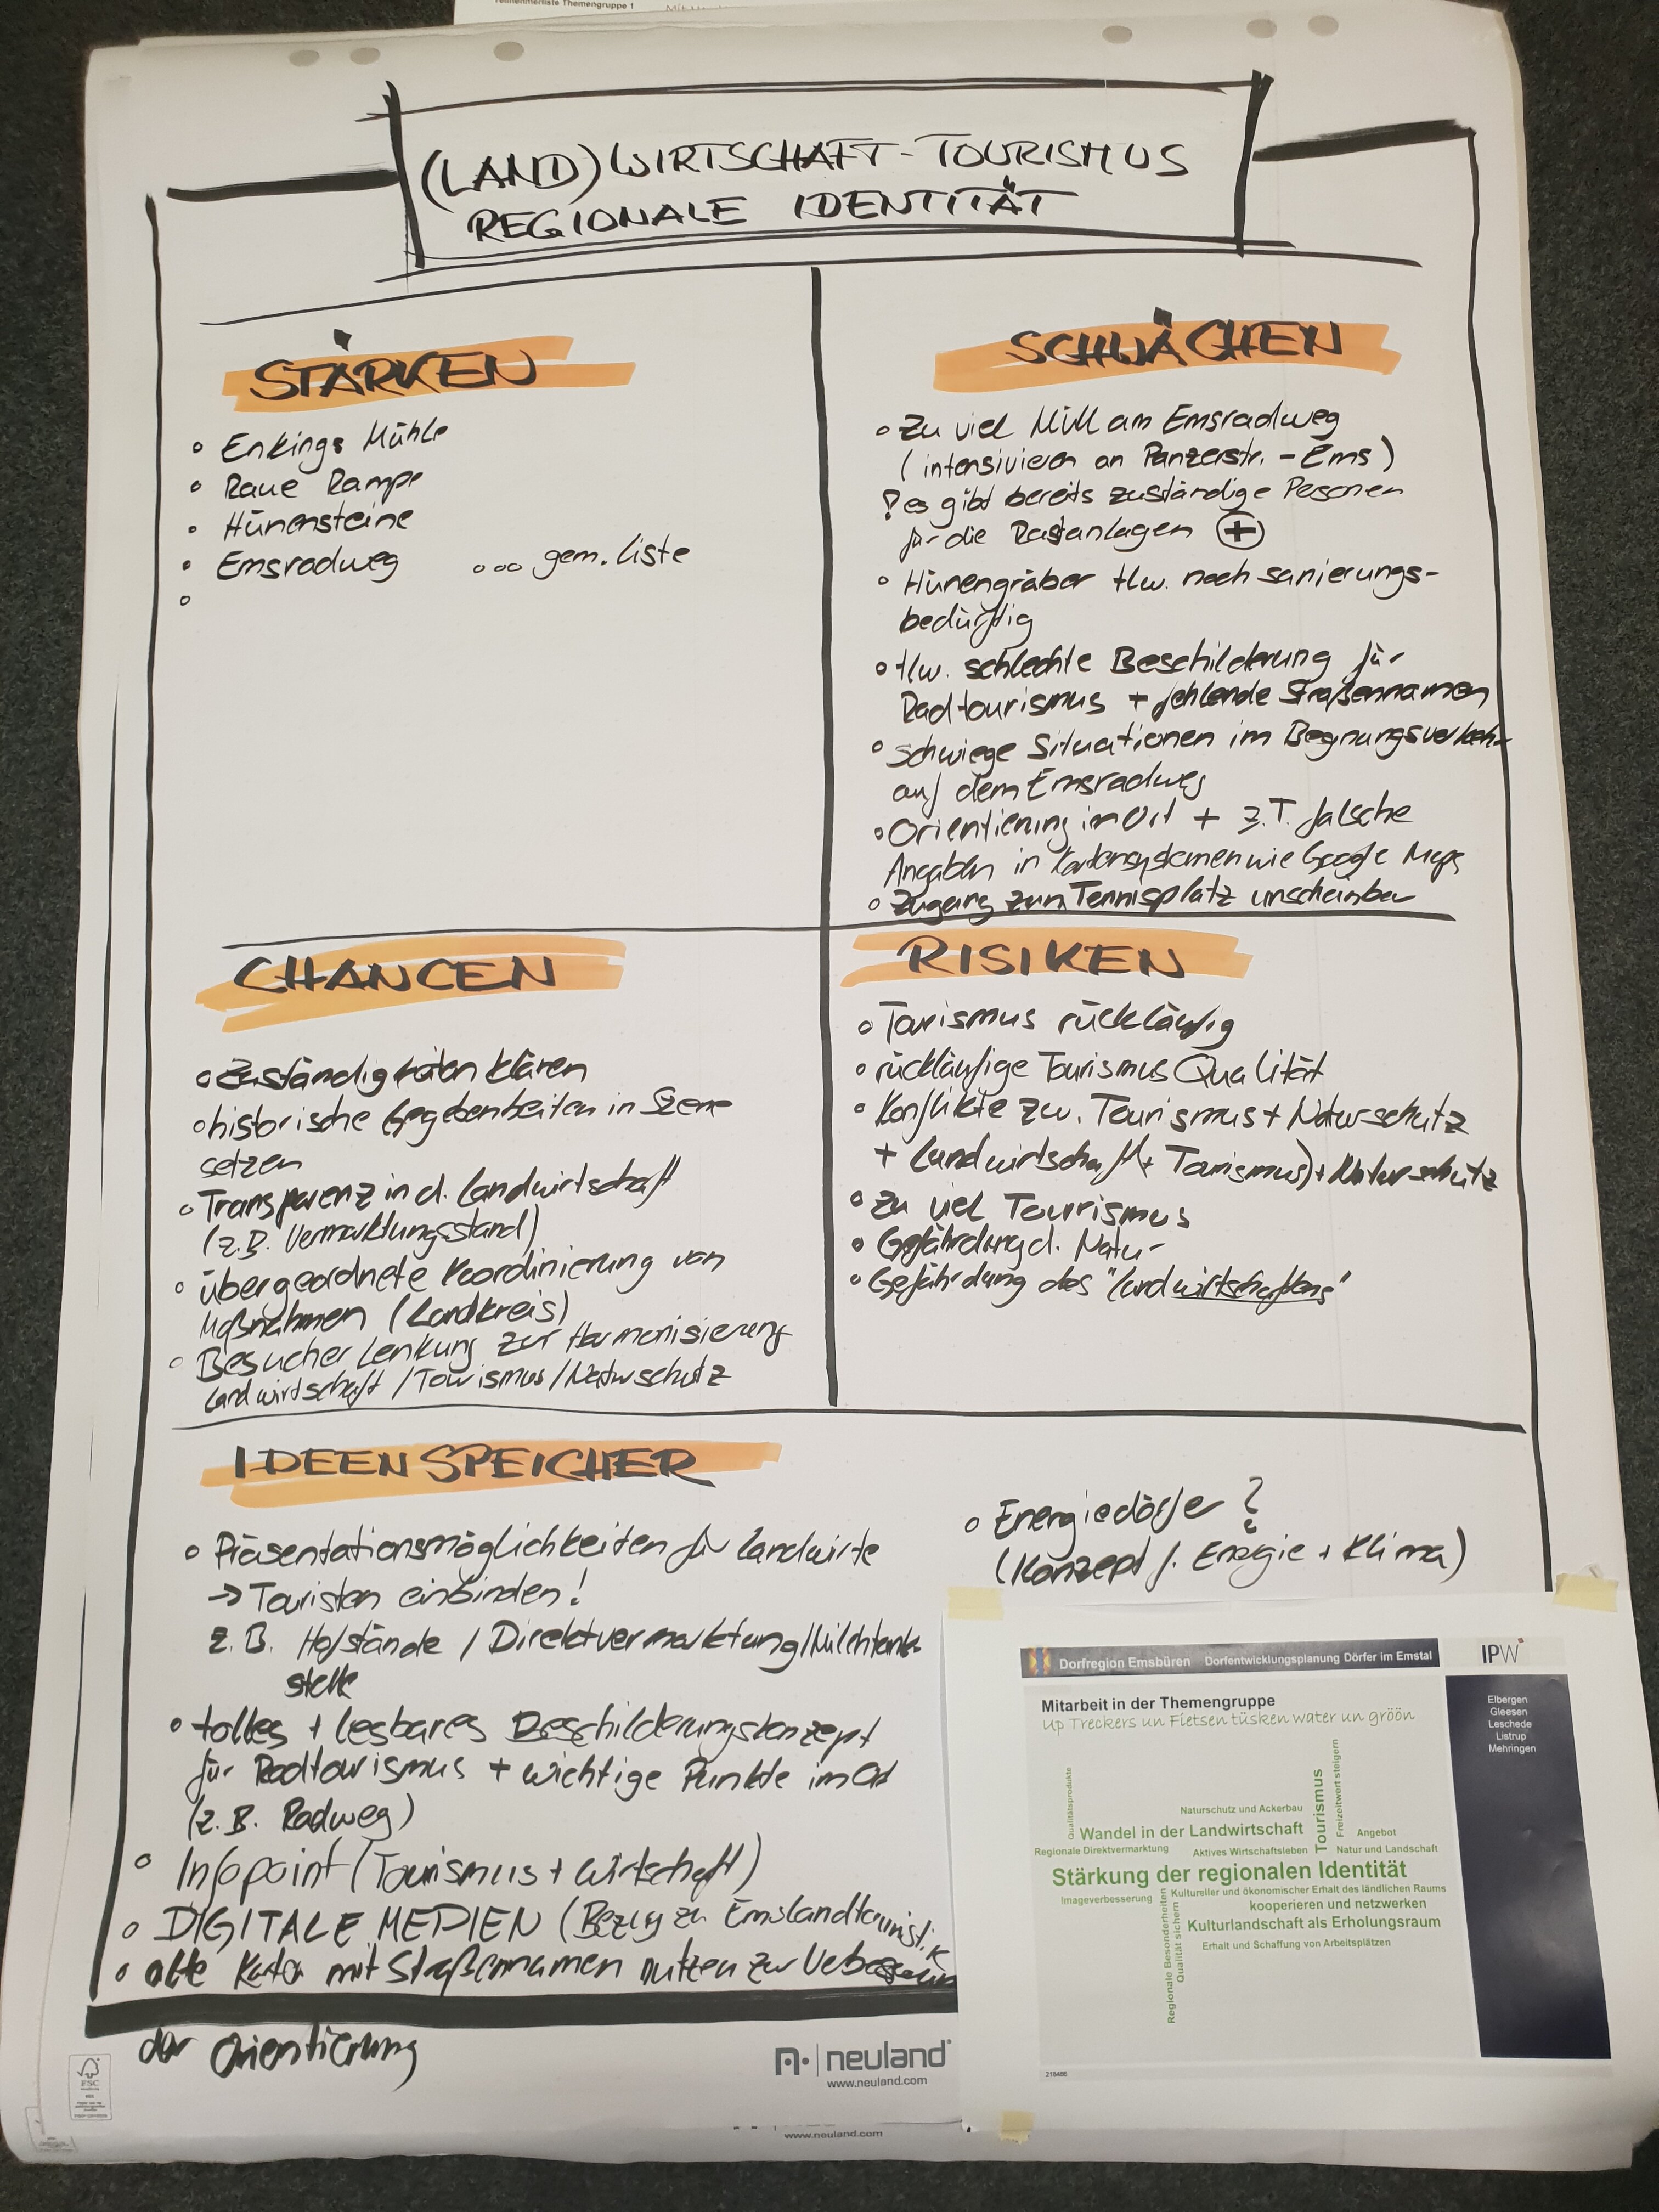 Teilnehmerliste Themengruppe 1
(LAND)WIRTSCHAFT-TOURISMUS
REGIONALE IDENTITÄT
STÄRKEN
Enkings Mühle
Raue Rampe
Hünensteine
Emsradweg ... gem. Liste
SCHWÄCHEN
Zu viel Müll am Emsradweg
(intensivieren an Panzerstr. - Ems)
! es gibt bereits zuständige Personen
für die Rastanlagen +
Hünengräber tlw. noch sanierungs-
bedürftig
tlw. schlechte Beschilderung für
Radtourismus + fehlende Straßennamen
schwiege Situationen im Begnungsverkehr
auf dem Emsradweg
Orientierung im Ort + z.T. falsche
Angaben in Kartensystemen wie Google Maps
Zugang zum Tennisplatz unscheinbar
CHANCEN
Zuständigkeiten klären
historische Gegebenheiten in Szene
setzen
Transparenz in d. Landwirtschaft
(z.B. Vermarktungsstand)
übergeordnete Koordinierung von
Maßnahmen (Landkreis)
Besucher Lenkung zur Harmonisierung
Landwirtschaft / Tourismus / Naturschutz
RISIKEN
Tourismus rückläufig
rückläufige Tourismus Qualität
Konflikte zw. Tourismus + Naturschutz
+ Landwirtschaft (+ Tourismus) + Naturschutz
Zu viel Tourismus
Gefährdung d. Natur
Gefährdung des "Landwirtschaftens"
IDEENSPEICHER
Präsentationsmöglichkeiten für Landwirte
→ Touristen einbinden!
z.B. Hofstände / Direktvermarktung / Milchtank-
stelle
tolles + lesbares Beschilderungskonzept
für Radtourismus + wichtige Punkte im Ort
(z.B. Radweg)
Infopoint (Tourismus + Wirtschaft)
DIGITALE MEDIEN (Bezug zu Emslandtouristik
alte Karten mit Straßennamen nutzen zur
der Orientierung
Energiedörfer?
(Konzept f. Energie + Klima)
Dorfregion Emsbüren Dorfentwicklungsplanung Dörfer im Emstal
IPW
Mitarbeit in der Themengruppe
Up Treckers un Fietsen tüsken water un gröön
Elbergen
Gleesen
Leschede
Listrup
Mehringen
Qualitätsprodukte
Tourismus
Freizeitwert steigern
Naturschutz und Ackerbau
Wandel in der Landwirtschaft
Angebot
Regionale Direktvermarktung
Aktives Wirtschaftsleben
Natur und Landschaft
Stärkung der regionalen Identität
Imageverbesserung
Kultureller und ökonomischer Erhalt des ländlichen Raums
kooperieren und netzwerken
Kulturlandschaft als Erholungsraum
Erhalt und Schaffung von Arbeitsplätzen
Regionale Besonderheiten
Qualität sichern
218486
FSC
neuland
www.neuland.com
www.neuland.com